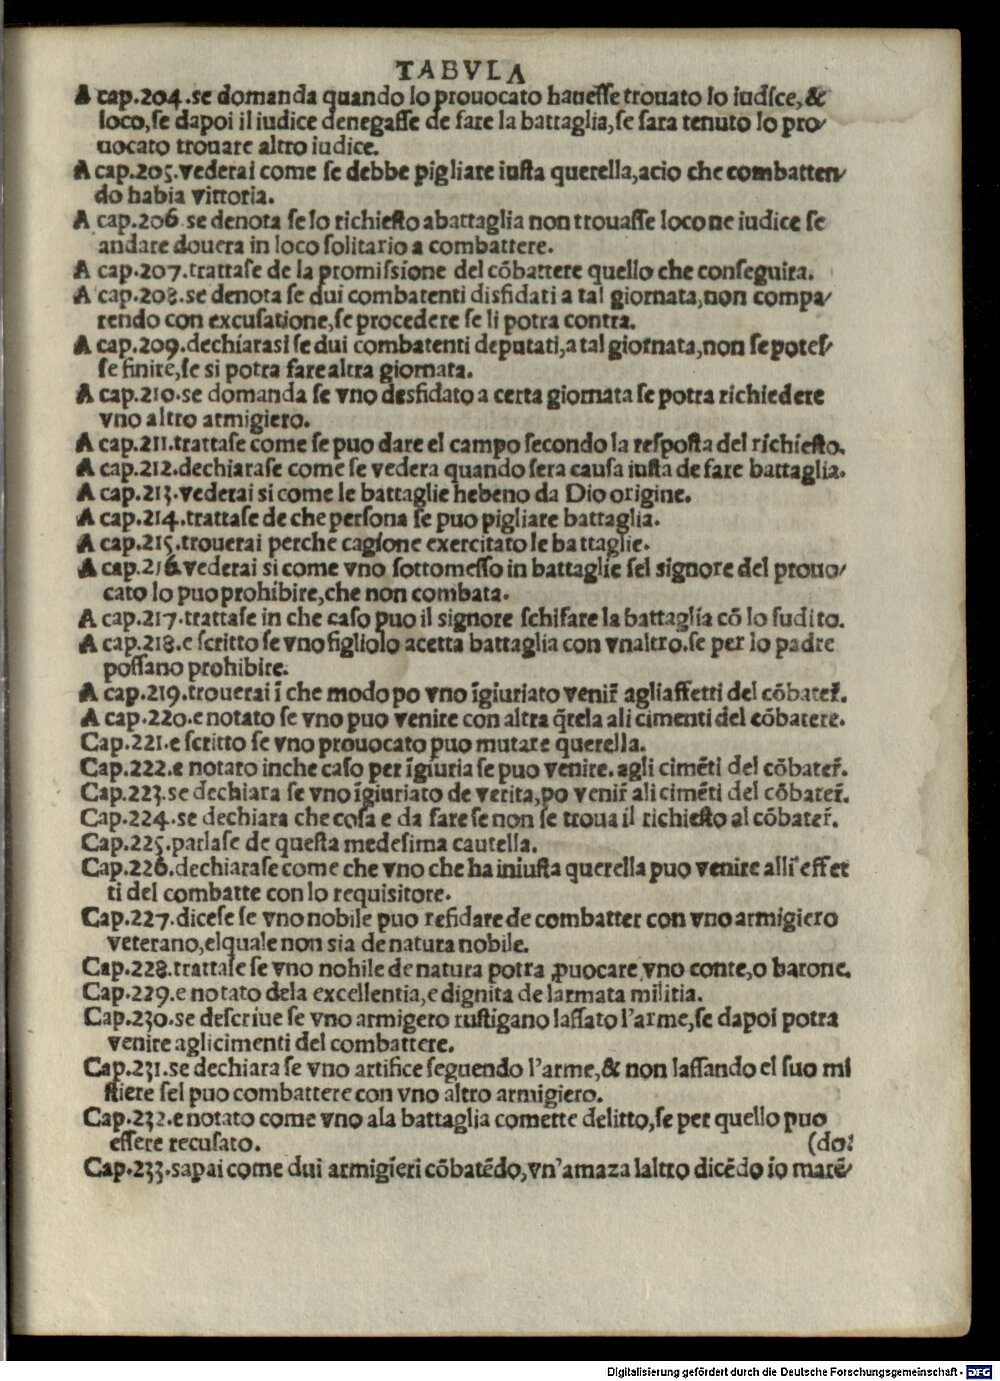 TABVLA
A cap.204.se domanda quando lo prouocato hauesse trouato lo iudice,&
loco,se dapoi il iudice denegasse de fare la battaglia,se sara tenuto lo pro/
uocato trouare altro iudice.
A cap.205.vederai come se debbe pigliare iusta querella,acio che combatten/
do habia vittoria.
A cap.206 se denota se lo richiesto abattaglia non trouasse loco ne iudice se
andare douera in loco solitario a combattere.
A cap.207.trattase de la promissione del cōbattere quello che conseguira.
A cap.208.se denota se dui combatenti disfidati a tal giornata,non compa/
rendo con excusatione,se procedere se li potra contra.
A cap.209.dechiarasi se dui combatenti deputati,a tal giornata,non se potes/
se finire,se si potra fare altra giornata.
A cap.210.se domanda se vno desfidato a certa giornata se potra richiedere
vno altro armigiero.
A cap.211.trattase come se puo dare el campo secondo la resposta del richiesto.
A cap.212.dechiarase come se vedera quando sera causa iusta de fare battaglia.
A cap.213.vederai si come le battaglie hebeno da Dio origine.
A cap.214.trattase de che persona se puo pigliare battaglia.
A cap.215.trouerai perche cagione exercitato le battaglie.
A cap.216.vederai si come vno sottomesso in battaglie sel signore del prouo/
cato lo puo prohibire,che non combata.
A cap.217.trattase in che caso puo il signore schifare la battaglia cō lo sudito.
A cap.218.e scritto se vno figliolo acetta battaglia con vnaltro.se per lo padre
possano prohibire.
A cap.219.trouerai ī che modo po vno īgiuriato venir̄ agliaffetti del cōbater̄.
A cap.220.e notato se vno puo venire con altra q̄rela ali cimenti del cōbatere.
Cap.221.e scritto se vno prouocato puo mutare querella.
Cap.222.e notato inche caso per īgiuria se puo venire.agli cimēti del cōbater̄.
Cap.223.se dechiara se vno īgiuriato de verita,po venir̄ ali cimēti del cōbater̄.
Cap.224.se dechiara che cosa e da fare se non se troua il richiesto al cōbater̄.
Cap.225.parlase de questa medesima cautella.
Cap.226.dechiarase come che vno che ha iniusta querella puo venire alli effet
ti del combatte con lo requisitore.
Cap.227.dicese se vno nobile puo refidare de combatter con vno armigiero
veterano,elquale non sia de natura nobile.
Cap.228.trattase se vno nohile de natura potra ꝓuocare vno conte,o barone.
Cap.229.e notato dela excellentia,e dignita de larmata militia.
Cap.230.se descriue se vno armigero rustigano lassato l'arme,se dapoi potra
venire aglicimenti del combattere.
Cap.231.se dechiara se vno artifice seguendo l'arme,& non lassando el suo mi
stiere sel puo combattere con vno altro armigiero.
Cap.232.e notato come vno ala battaglia comette delitto,se per quello puo
essere recusato. (do:
Cap.233.sapai come dui armigieri cōbatēdo,vn'amaza laltro dicēdo io marē/
Digitalisierung gefördert durch die Deutsche Forschungsgemeinschaft - DFG